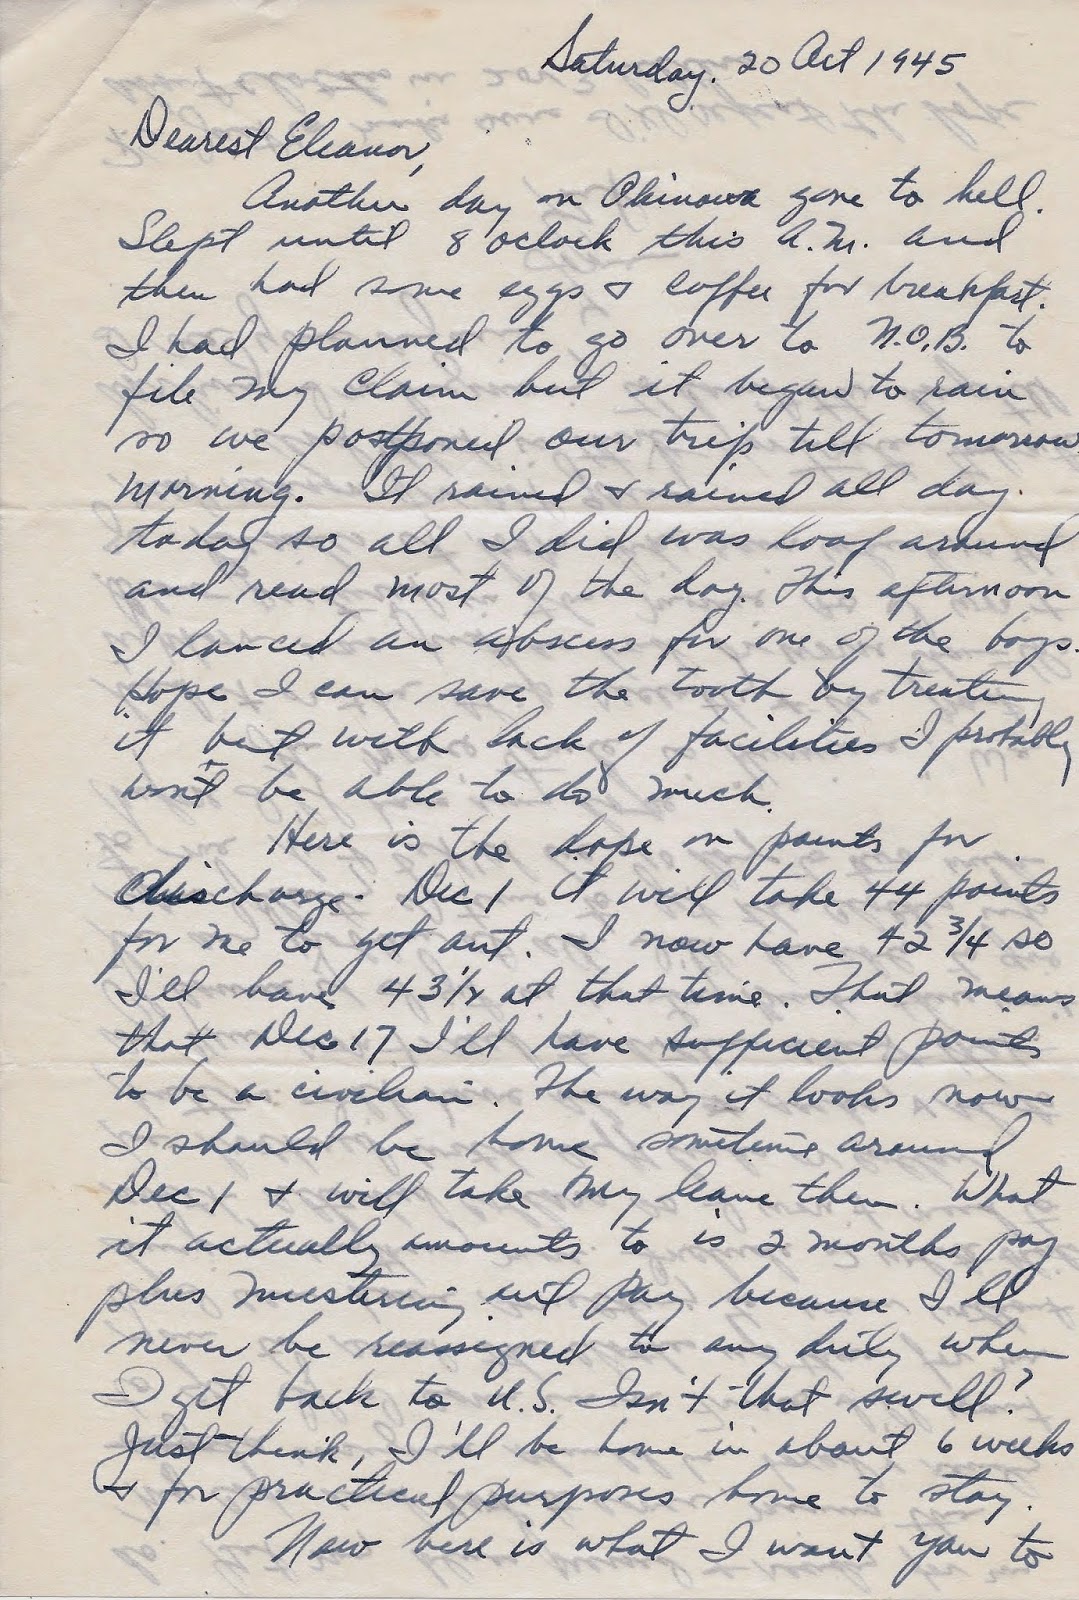 Saturday. 20 Oct 1945
Dearest Eleanor,
Another day on Okinawa gone to hell.
Slept until 8 oclock this A.M. and
then had some eggs & coffee for breakfast.
I had planned to go over to N.O.B. to
file my claim but it began to rain
so we postponed our trip till tomorrow
morning. It rained & rained all day
today so all I did was loaf around
and read most of the day. This afternoon
I lanced an abscess for one of the boys.
Hope I can save the tooth by treating
it but with lack of facilities I probably
won't be able to do much.
Here is the dope on points for
discharge. Dec 1 it will take 44 points
for me to get out. I now have 42 3/4 so
I'll have 43 1/2 at that time. That means
that Dec 17 I'll have sufficient points
to be a civilian. The way it looks now
I should be home sometime around
Dec 1 & will take my leave then. What
it actually amounts to is 2 months pay
plus mustering out pay because I'll
never be reassigned to any duty when
I get back to U.S. Isn't that swell?
Just think, I'll be home in about 6 weeks
& for practical purposes home to stay.
Now here is what I want you to